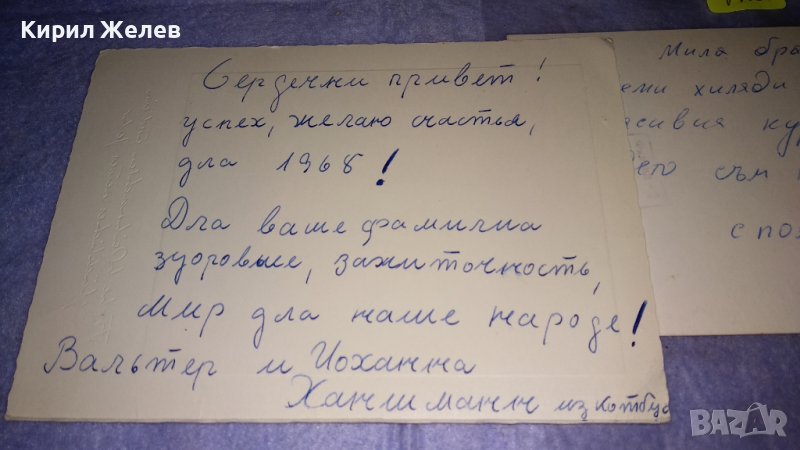 Кирил Желев
Сердечни привет!
успех, желаю счастья,
дла 1968!
Дла ваше фамилиа
здоровые, зажиточность,
Мир дла наше народе!
Вальтер и Иоханна
Ханшманн из котбус
Мила
хиляди
съм
с
BAZAR